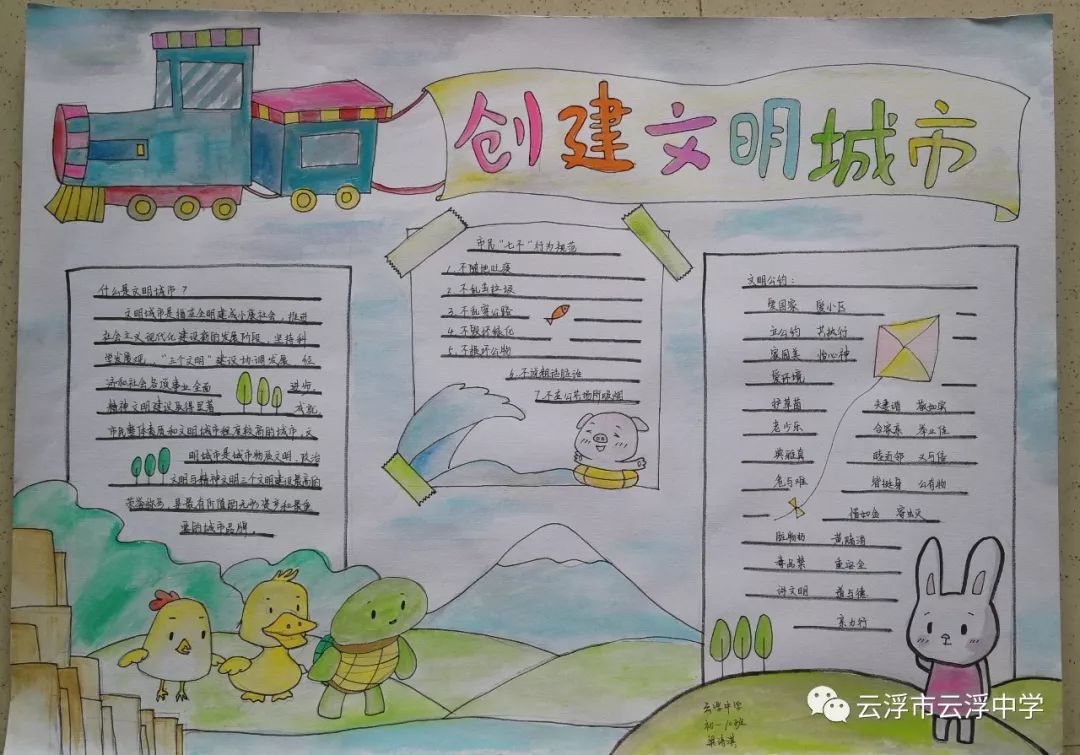 创建文明城市
什么是文明城市？
文明城市是指在全明建成小康社会，推进
社会主义现代化建设新的发展阶段，坚持科
学发展观，“三个文明”建设协调发展，经
济和社会各项事业全面 进步
精神文明建设取得显著 成就
市民整体素质和文明城市程度较高的城市，文
明城市是城市物质文明、政治
文明与精神文明三个文明建设最高的
荣誉称号，是最有价值的无形资产和最重
要的城市品牌。
市民“七不”行为规范
1.不随地吐痰
2.不乱丢垃圾
3.不乱穿公路
4.不毁坏绿化
5.不损坏公物
6.不说粗话脏话
7.不在公共场所吸烟
文明公约：
爱国家 爱小区
立公约 共执行
家园美 怡心神
爱环境
护草苗
老少乐
典雅真
危与难
夫妻谐 敬如宾
合家亲
睦近邻 义与信
公有物
惜如金
脏物扔
毒品禁 重安全
讲文明 善与德
亲力行
云浮中学
初一10班
云浮市云浮中学